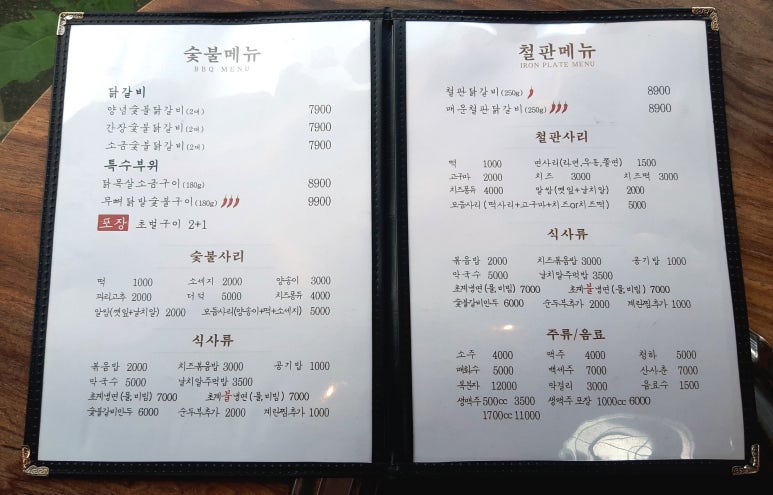 숯불메뉴
BBQ MENU
닭갈비
양념숯불닭갈비(2대) 7900
간장숯불닭갈비(2대) 7900
소금숯불닭갈비(2대) 7900
특수부위
닭목살소금구이(180g) 8900
무뼈닭발숯불구이(180g) 9900
포장 초벌구이 2+1
숯불사리
떡 1000 소세지 2000 양송이 3000
꽈리고추 2000 더덕 5000 치즈퐁듀 4000
알쌈(깻잎+날치알) 2000 모듬사리(양송이+떡+소세지) 5000
식사류
볶음밥 2000 치즈볶음밥 3000 공기밥 1000
막국수 5000 날치알주먹밥 3500
초계냉면(물,비빔) 7000 초계불냉면(물,비빔) 7000
숯불갈비만두 6000 순두부추가 2000 계란찜추가 1000
철판메뉴
IRON PLATE MENU
철판닭갈비(250g) 8900
매운철판닭갈비(250g) 8900
철판사리
떡 1000 면사리(라면,우동,쫄면) 1500
고구마 2000 치즈 3000 치즈떡 3000
치즈퐁듀 4000 알쌈(깻잎+날치알) 2000
모듬사리(떡사리+고구마+치즈or치즈떡) 5000
식사류
볶음밥 2000 치즈볶음밥 3000 공기밥 1000
막국수 5000 날치알주먹밥 3500
초계냉면(물,비빔) 7000 초계불냉면(물,비빔) 7000
숯불갈비만두 6000 순두부추가 2000 계란찜추가 1000
주류/음료
소주 4000 맥주 4000 청하 5000
매화수 5000 백세주 7000 산사춘 7000
복분자 12000 막걸리 3000 음료수 1500
생맥주 500cc 3500 생맥주 포장 1000cc 6000
1700cc 11000